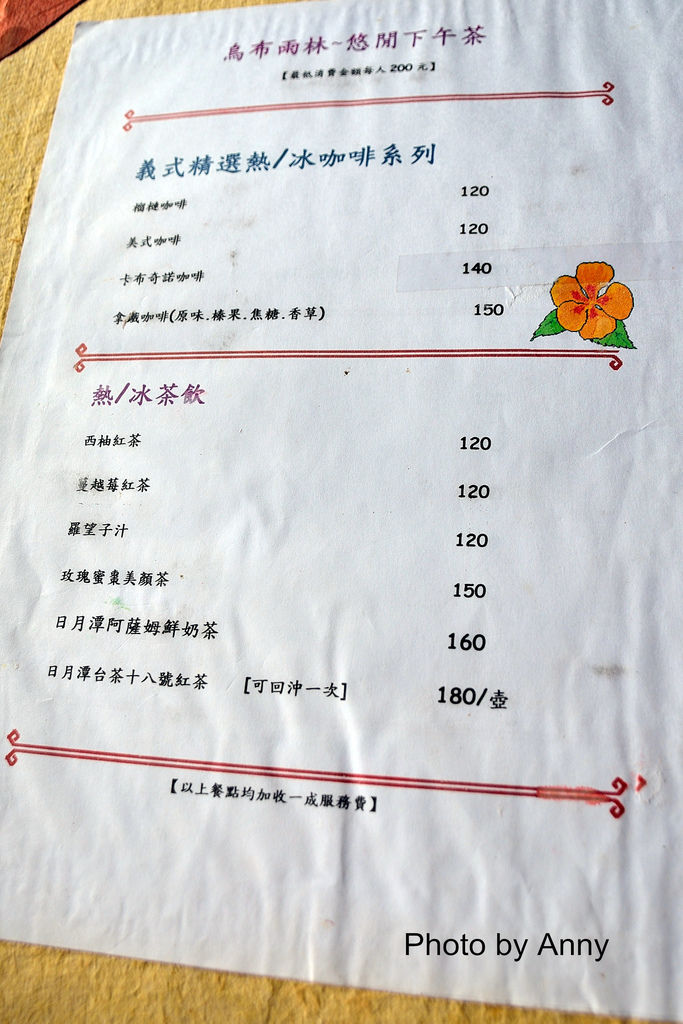 烏布雨林~悠閒下午茶
【最低消費金額每人 200 元】
義式精選熱/冰咖啡系列
榴槤咖啡 120
美式咖啡 120
卡布奇諾咖啡 140
拿鐵咖啡(原味.榛果.焦糖.香草) 150
熱/冰茶飲
西柚紅茶 120
蔓越莓紅茶 120
羅望子汁 120
玫瑰蜜棗美顏茶 150
日月潭阿薩姆鮮奶茶 160
日月潭台茶十八號紅茶 [可回沖一次] 180/壺
【以上餐點均加收一成服務費】
Photo by Anny